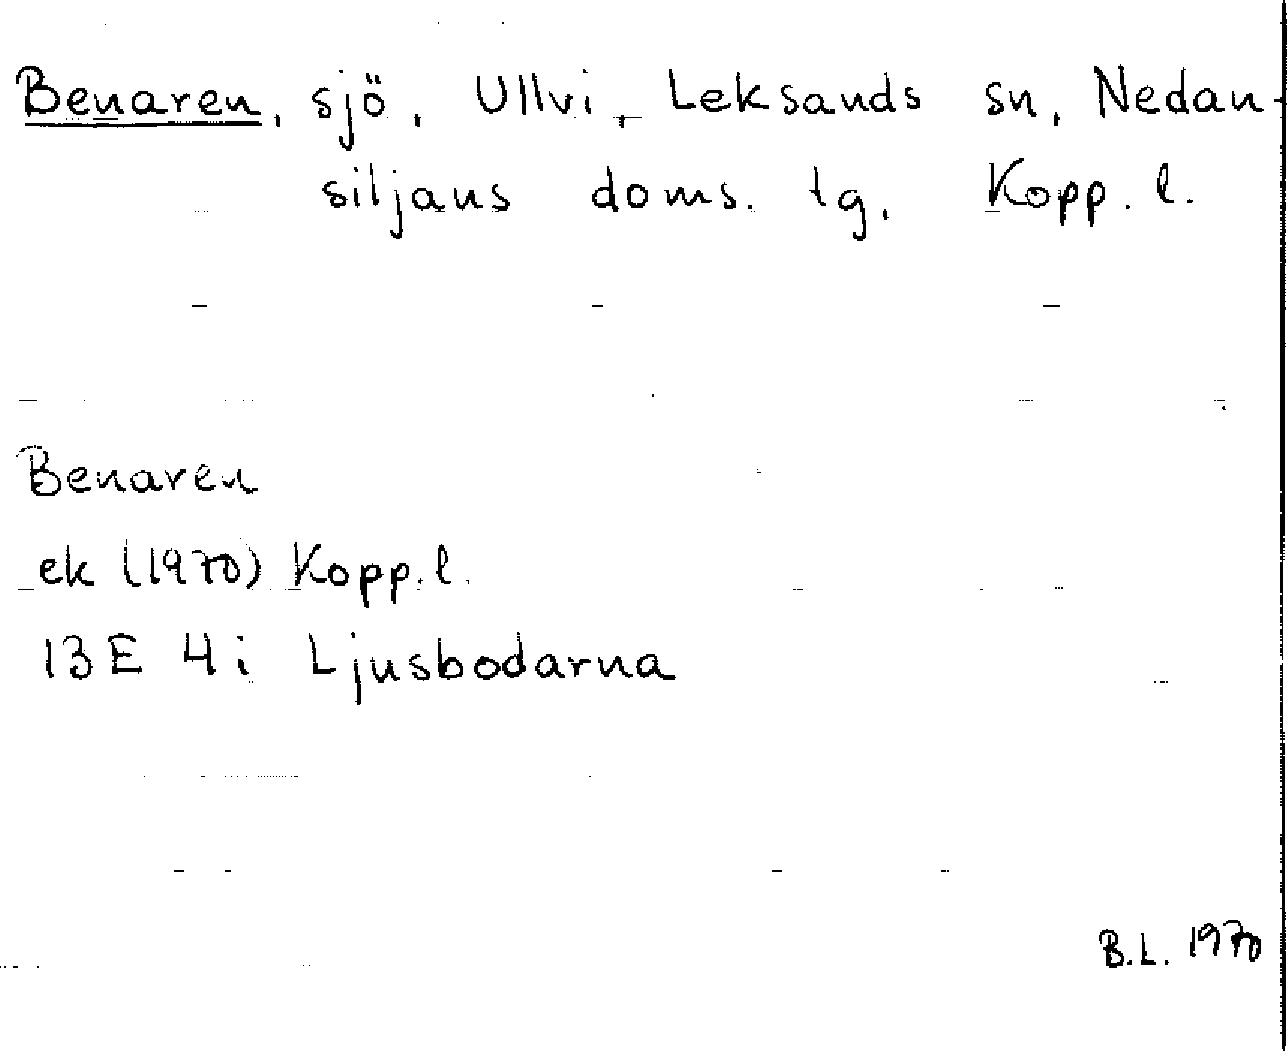 Benaren, sjö, Ullvi, Leksands sn, Nedan-
siljans doms. tg, Kopp. l.
Benaren
ek (1970) Kopp. l.
13E 4i Ljusbodarna
B.L. 1970